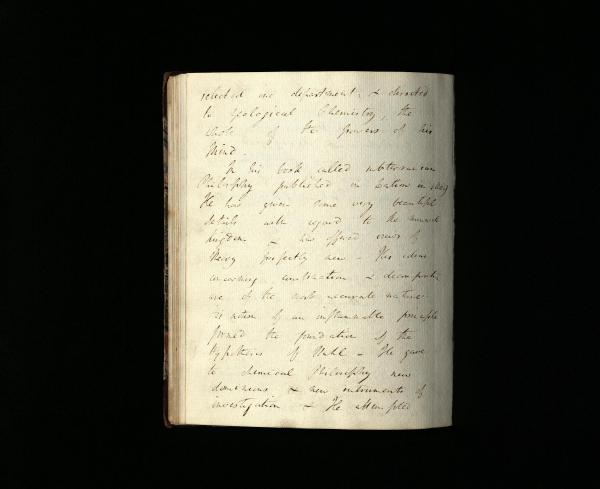 selected one department & devoted
to Geological Chemistry, the
whole of the powers of his
Mind.
In his book called subterranean
Philosophy published in Latin in
He has given some very beautiful
details with regard to the mineral
kingdom & has offered views of
Theory perfectly new - His ideas
concerning construction &
are of the most accurate nature
His notion of an inflammable principle
formed the foundation of the
Hypothesis of Stahl - He gave
to chemical Philosophy new
dominions & new instruments of
investigation & He attempted